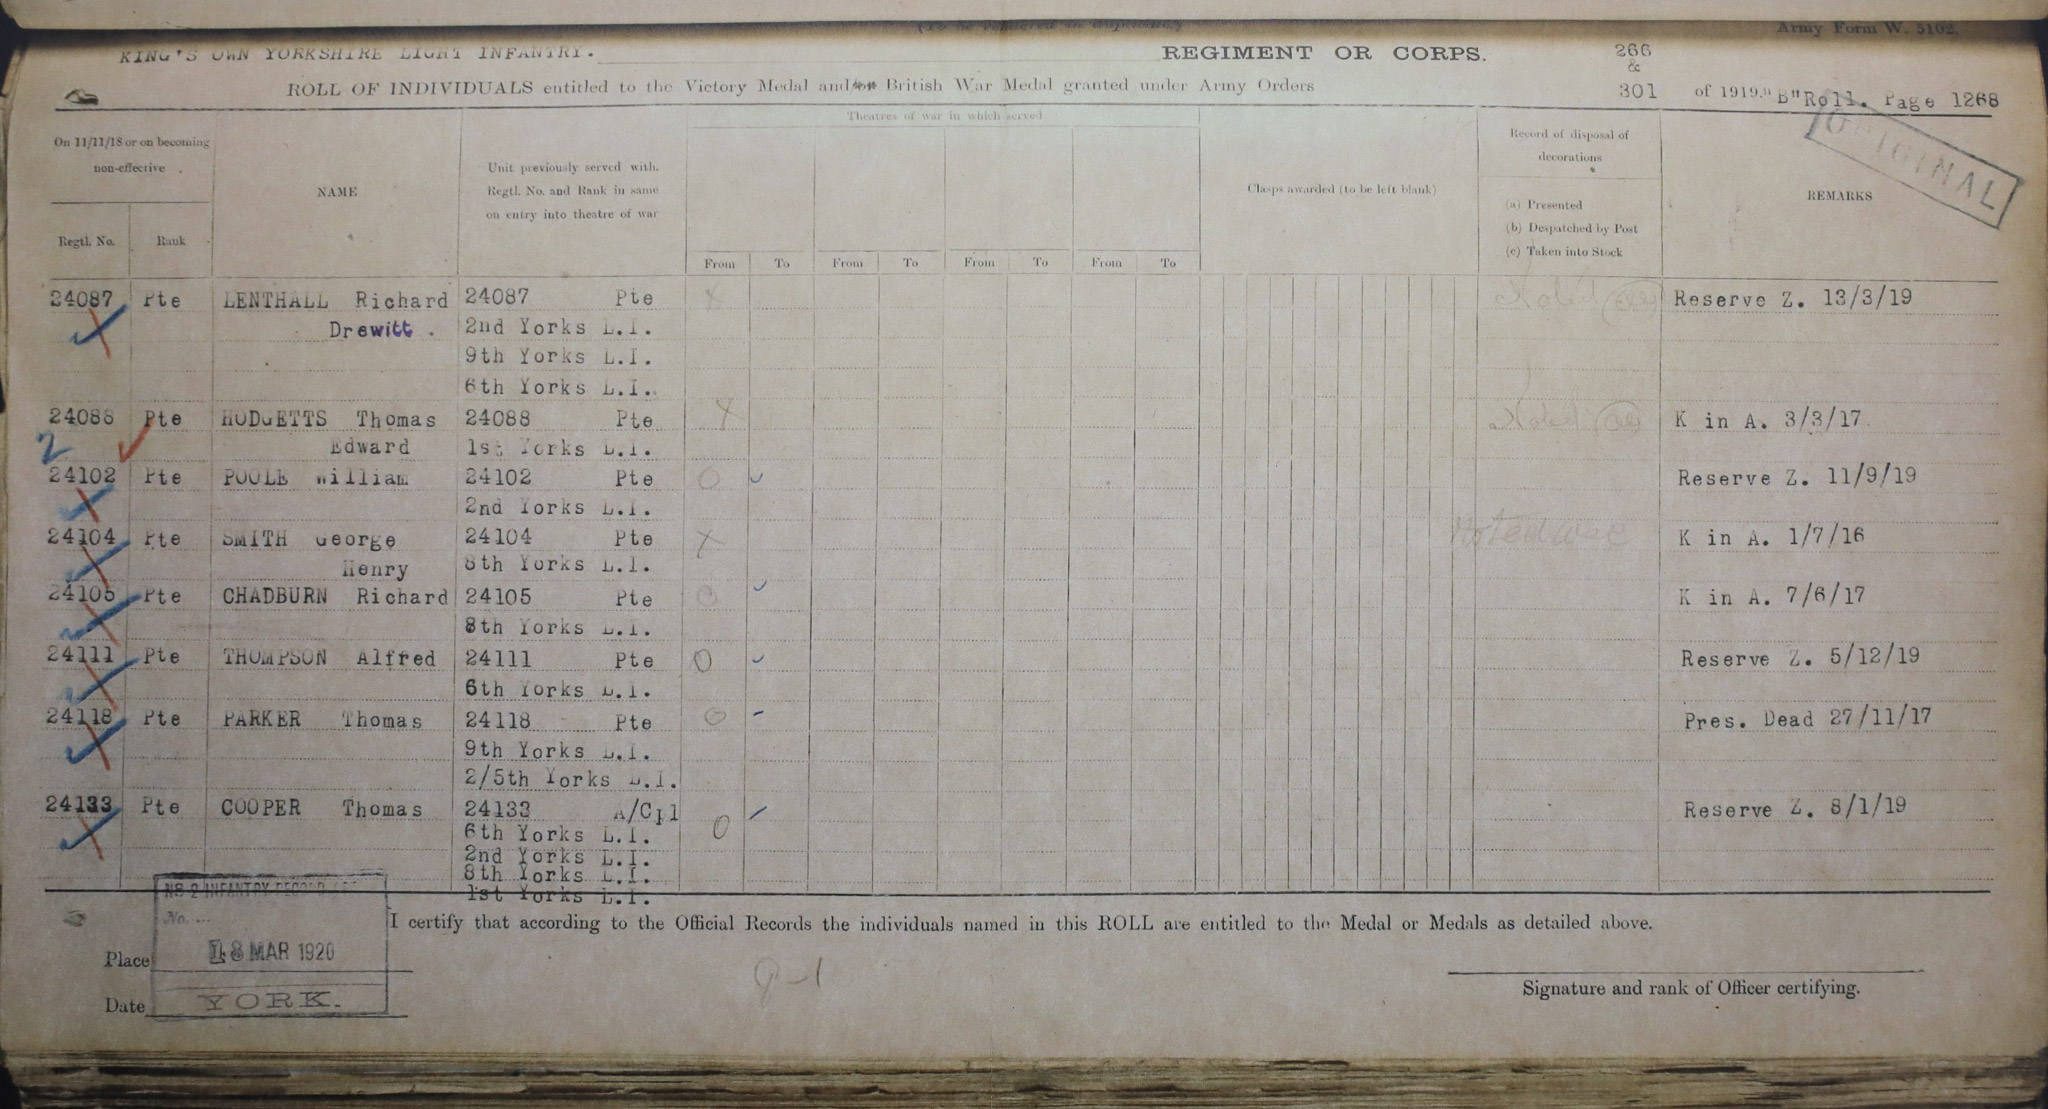 (To be rendered in duplicate.)
Army Form W. 5102.
KING'S OWN YORKSHIRE LIGHT INFANTRY. REGIMENT OR CORPS. 266
&
ROLL OF INDIVIDUALS entitled to the Victory Medal and British War Medal granted under Army Orders 301 of 1919. "B" Roll. Page 1268
ORIGINAL
Theatres of war in which served
On 11/11/18 or on becoming
non-effective
NAME
Unit previously served with.
Regtl. No. and Rank in same
on entry into theatre of war
Clasps awarded (to be left blank)
Record of disposal of
decorations
(a) Presented
(b) Despatched by Post
(c) Taken into Stock
REMARKS
Regtl. No. Rank
From To From To From To From To
24087 Pte LENTHALL Richard 24087 Pte X Noted Reserve Z. 13/3/19
Drewitt. 2nd Yorks L.I.
9th Yorks L.I.
6th Yorks L.I.
24088 Pte HODGETTS Thomas 24088 Pte X Noted K in A. 3/3/17
2 Edward 1st Yorks L.I.
24102 Pte POOLE William 24102 Pte O Reserve Z. 11/9/19
2nd Yorks L.I.
24104 Pte SMITH George 24104 Pte X Noted K in A. 1/7/16
Henry 8th Yorks L.I.
24105 Pte CHADBURN Richard 24105 Pte O K in A. 7/6/17
8th Yorks L.I.
24111 Pte THOMPSON Alfred 24111 Pte O Reserve Z. 5/12/19
6th Yorks L.I.
24118 Pte PARKER Thomas 24118 Pte O Pres. Dead 27/11/17
9th Yorks L.I.
2/5th Yorks L.I.
24133 Pte COOPER Thomas 24133 A/Cpl O Reserve Z. 8/1/19
6th Yorks L.I.
2nd Yorks L.I.
8th Yorks L.I.
1st Yorks L.I.
No 2 INFANTRY RECORD
No. ...
I certify that according to the Official Records the individuals named in this ROLL are entitled to the Medal or Medals as detailed above.
Place 18 MAR 1920
Date YORK.
Signature and rank of Officer certifying.